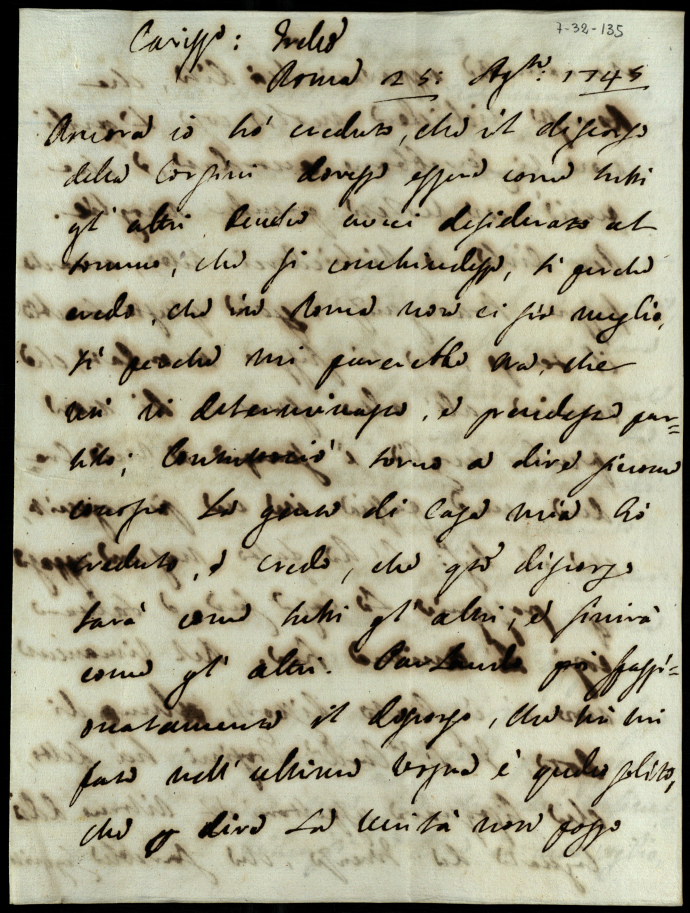 7-32-135
Cariss.mo: Frello
Roma 25: Ag.to: 1745
Ancora io hó creduto, che il discorso
della Corsini dovesse essere come tutti
gl' altri benche avrei desiderato al
sommo, che si conchiudesse, si perche
credo, che in Roma non ci sia meglio,
si perche mi parerebbe ora, che
voi vi determinaste, e prendeste par=
tito; torno a dire siccome
conosco la gente di Casa mia hó
creduto, e credo, che q.to discorso
sará come tutti gl' altri, e finirá
come gl' altri. Parlando poi spassi=
onatamente il discorso, che tu mi
fate nell' ultima vostra é quello solito,
che p dire la veritá non posso